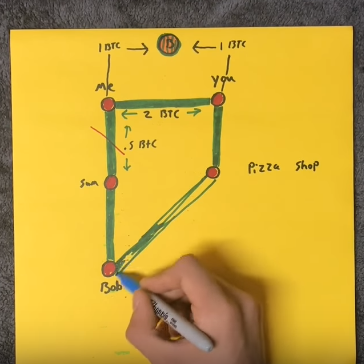 1 BTC → B ← 1 BTC
Me
you
← 2 BTC →
.5 BTC
Sam
Pizza Shop
Bob